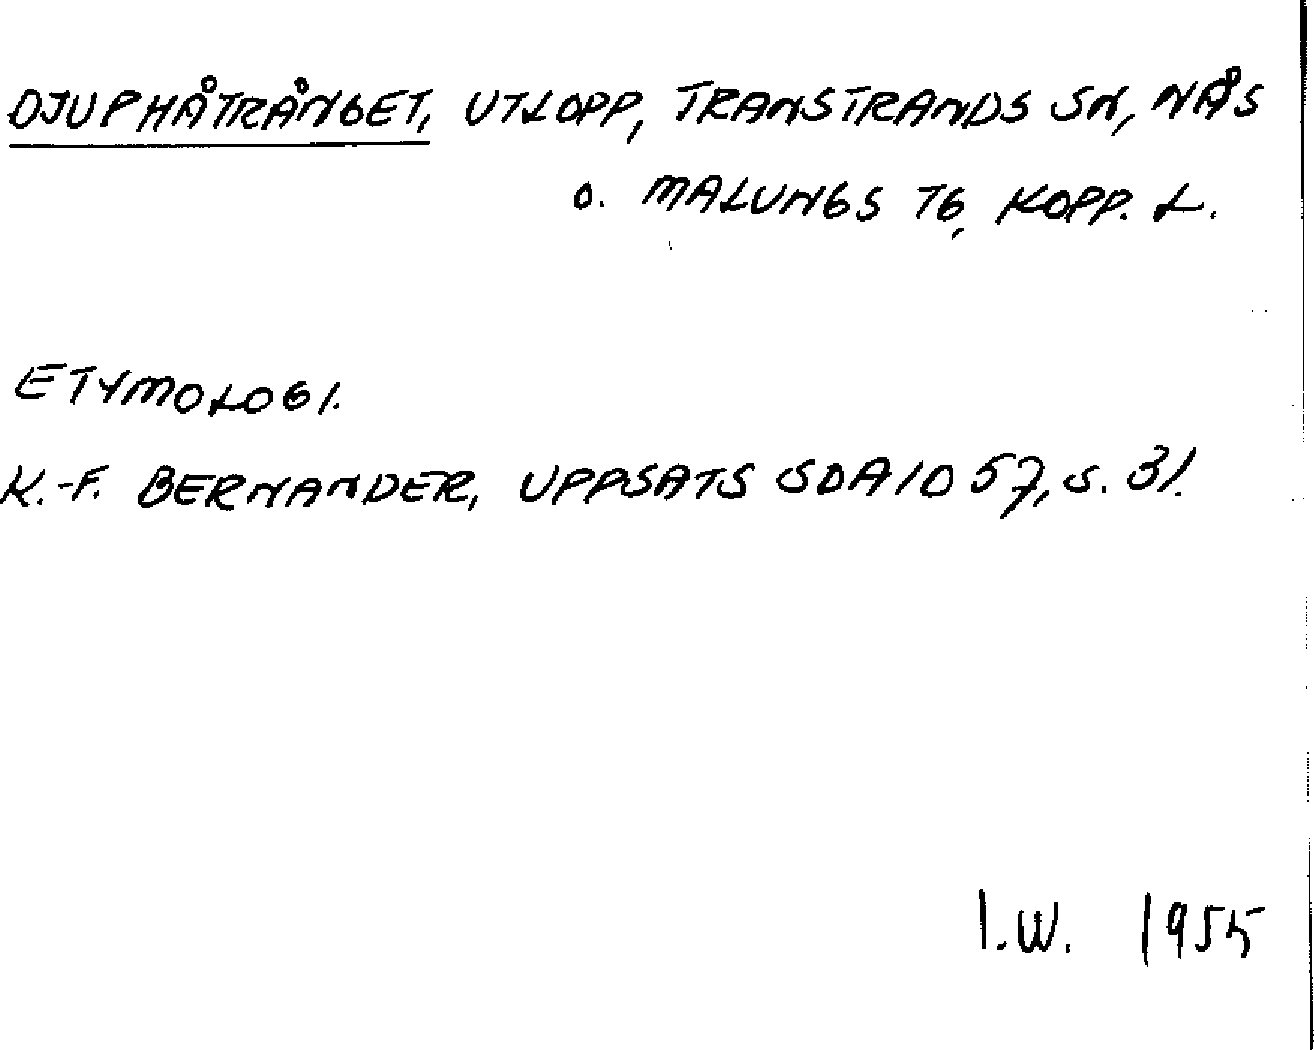 DJUPHÅTRÅNGET, UTLOPP, TRANSTRANDS SN, NÅS
O. MALUNGS TG, KOPP. L.
ETYMOLOGI.
K.-F. BERNANDER, UPPSATS SOAID 57, S. 31.
I.W. 1955